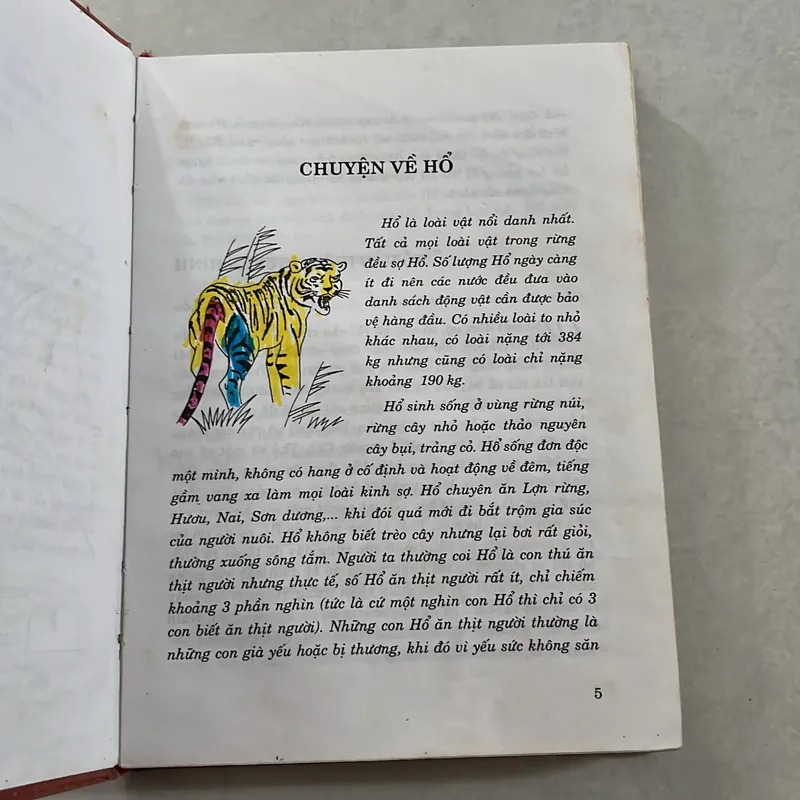 CHUYỆN VỀ HỔ
Hổ là loài vật nổi danh nhất.
Tất cả mọi loài vật trong rừng
đều sợ Hổ. Số lượng Hổ ngày càng
ít đi nên các nước đều đưa vào
danh sách động vật cần được bảo
vệ hàng đầu. Có nhiều loài to nhỏ
khác nhau, có loài nặng tới 384
kg nhưng cũng có loài chỉ nặng
khoảng 190 kg.
Hổ sinh sống ở vùng rừng núi,
rừng cây nhỏ hoặc thảo nguyên
cây bụi, trảng cỏ. Hổ sống đơn độc
một mình, không có hang ở cố định và hoạt động về đêm, tiếng
gầm vang xa làm mọi loài kinh sợ. Hổ chuyên ăn Lợn rừng,
Hươu, Nai, Sơn dương,... khi đói quá mới đi bắt trộm gia súc
của người nuôi. Hổ không biết trèo cây nhưng lại bơi rất giỏi,
thường xuống sông tắm. Người ta thường coi Hổ là con thú ăn
thịt người nhưng thực tế, số Hổ ăn thịt người rất ít, chỉ chiếm
khoảng 3 phần nghìn (tức là cứ một nghìn con Hổ thì chỉ có 3
con biết ăn thịt người). Những con Hổ ăn thịt người thường là
những con già yếu hoặc bị thương, khi đó vì yếu sức không săn
5